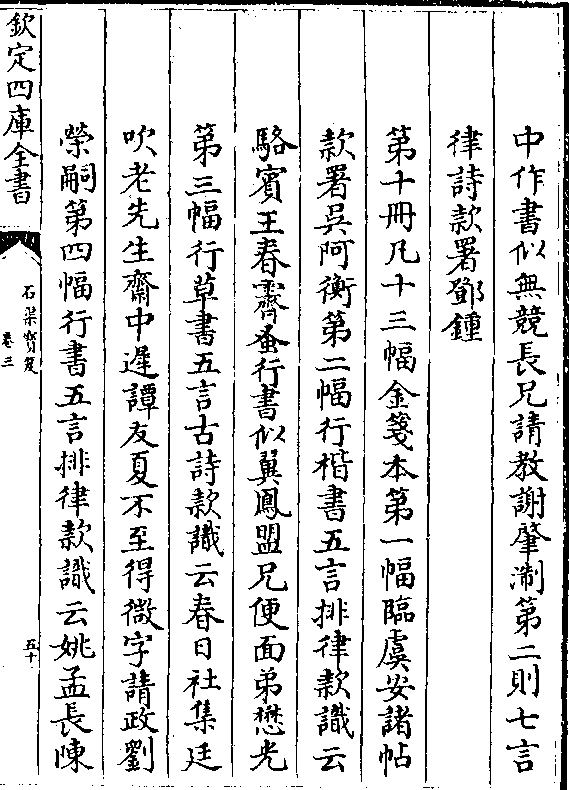 中作書似無競長兄請教謝肇淛第二則七言
律詩款署鄧鍾
第十冊凡十三幅金箋本第一幅臨虞安諸帖
款署吳阿衡第二幅行楷書五言排律款識云
駱賓王春霽蚤行書似翼鳳盟兄便面弟懋光
第三幅行草書五言古詩款識云春日社集廷
吹老先生齋中遲譚友夏不至得微字請政劉
榮嗣第四幅行書五言排律款識云姚孟長陳
欽定四庫全書
石渠寳笈
卷三
五十